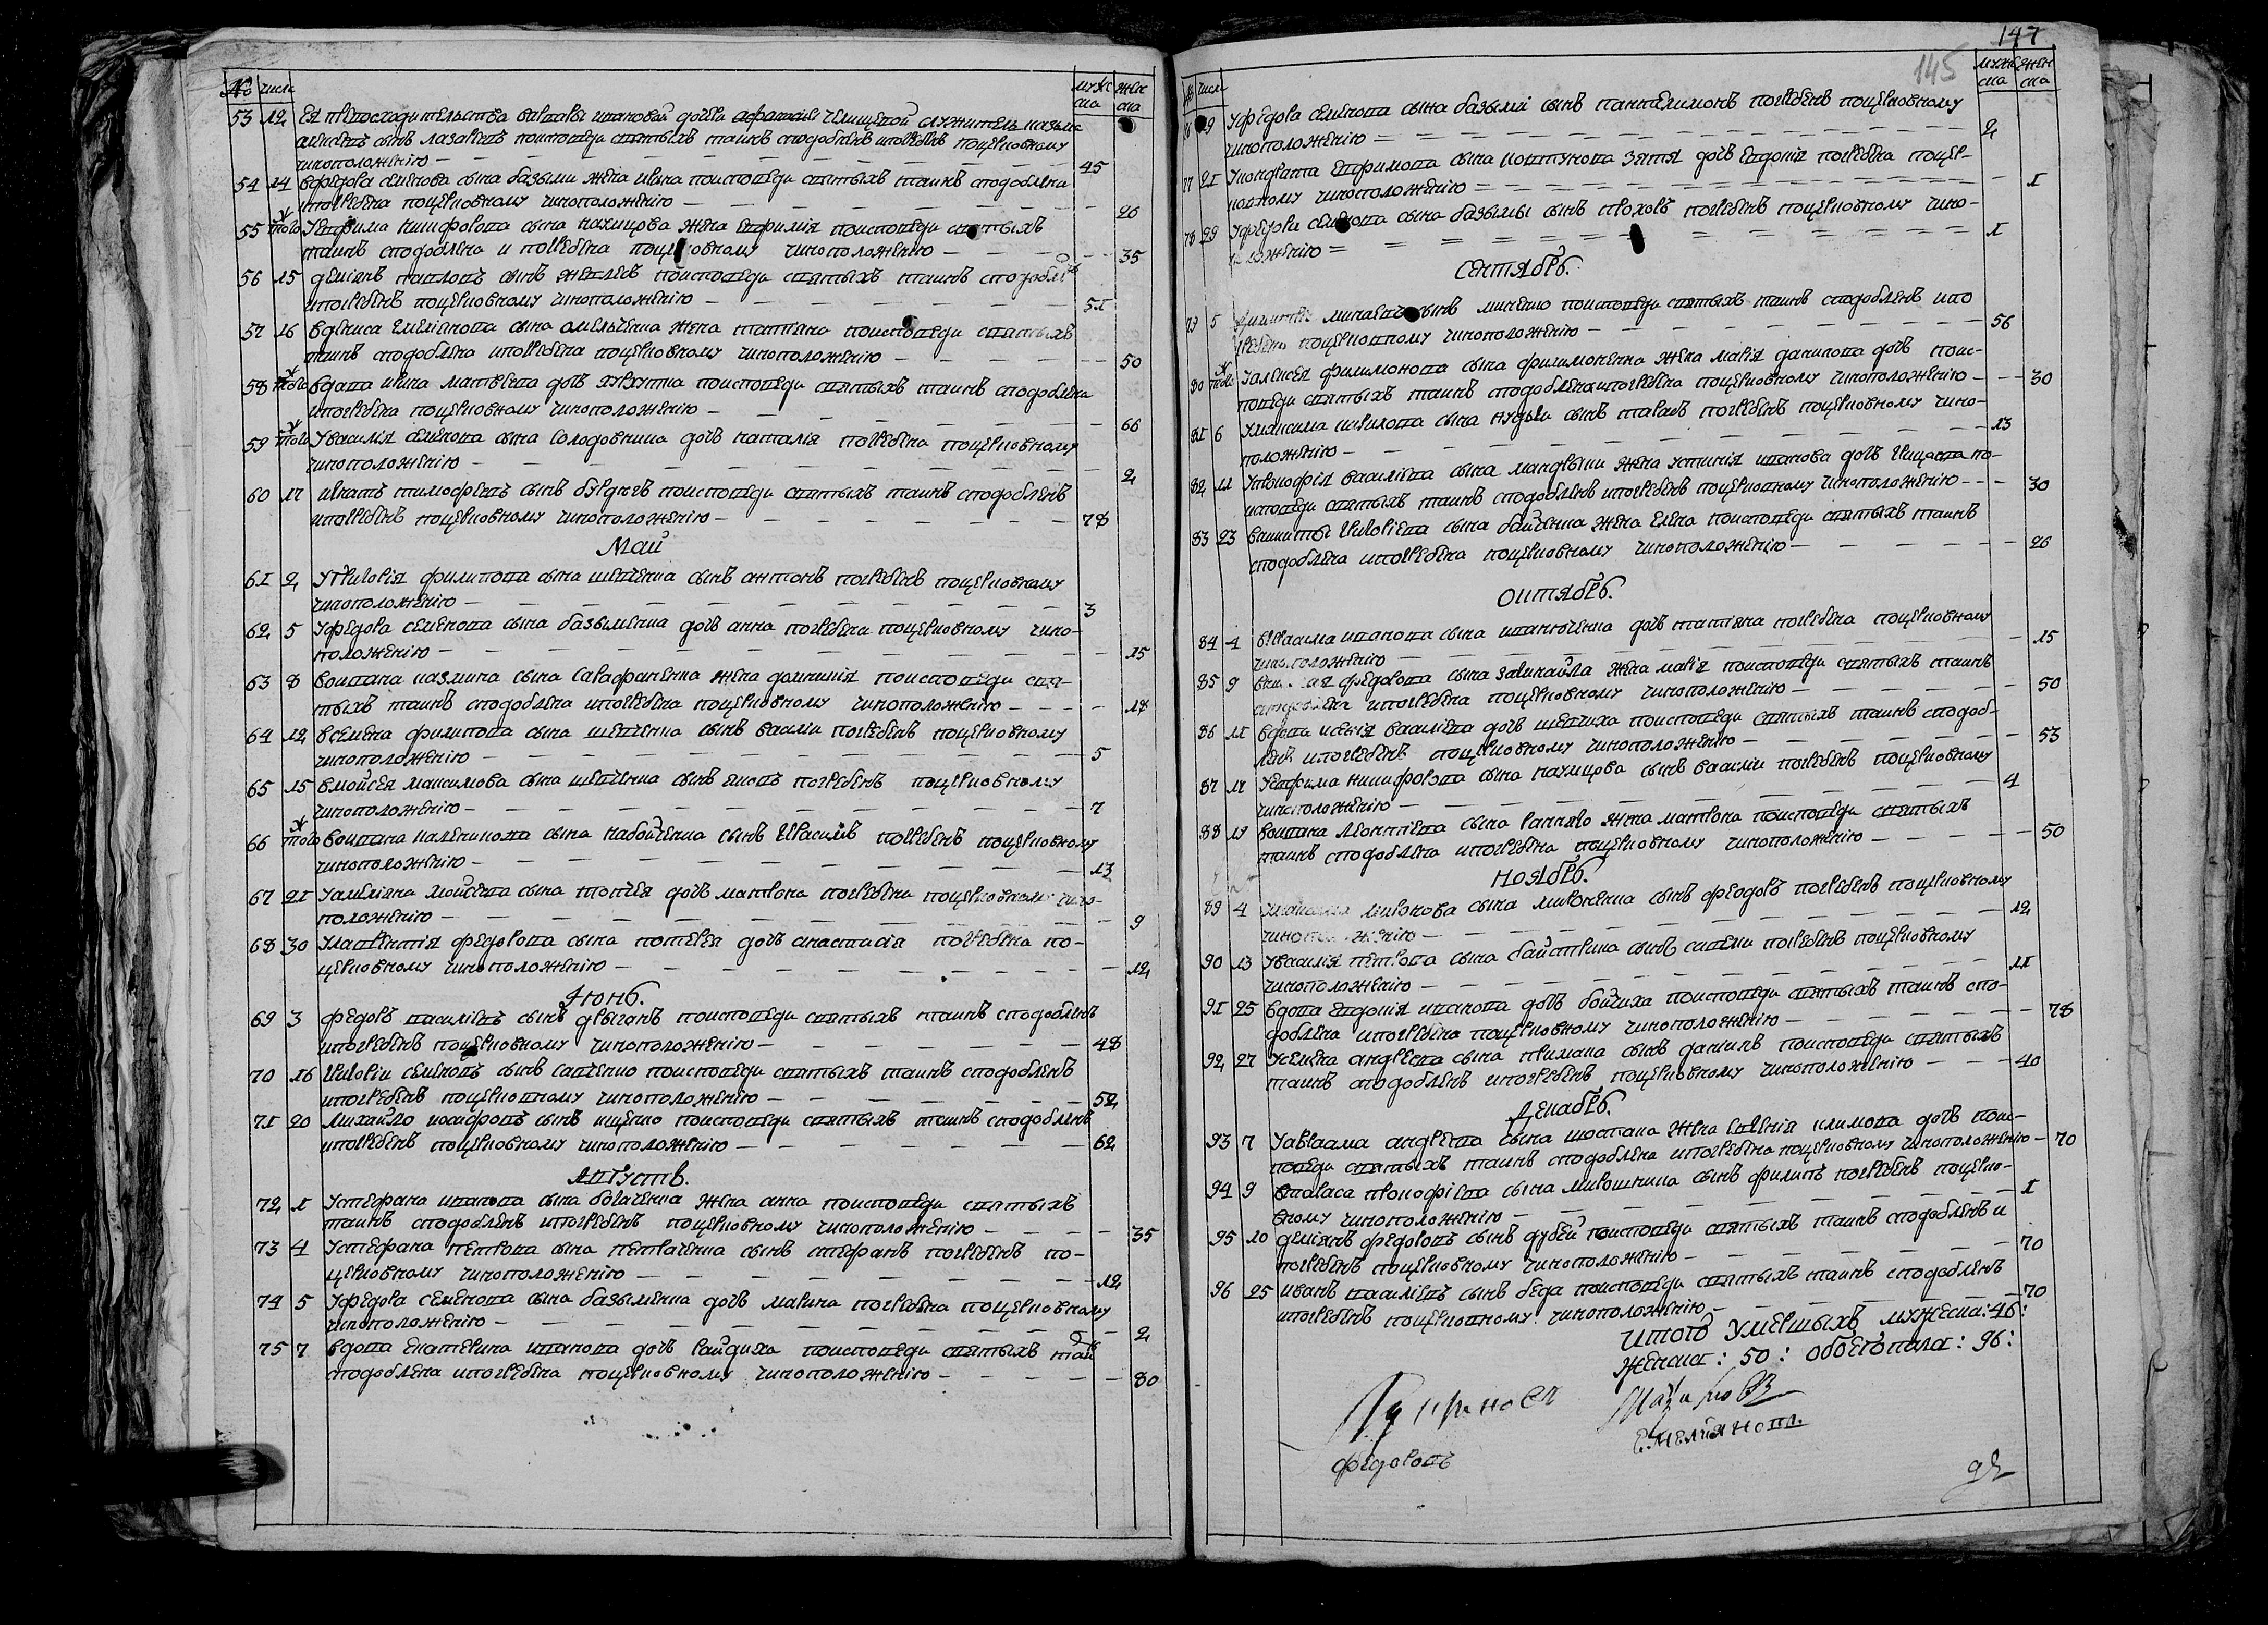 № числа мужеска женска
53 12 Ея превосходителства варвары ивановой дочери челищевой служитель казма
алексеевъ сынъ лазаревъ поисповеди святыхъ таинъ сподобленъ ипогребенъ поцерковному
чиноположению — 45
54 14 Уфедора семенова сына базыми жена ирина поисповеди святыхъ таинъ сподоблена
ипогребена поцерковному чиноположению — 26
55 того Уефима никифорова сына жена ефимия поисповеди святыхъ
таинъ сподоблена и погребена поцерковному чиноположению — 35
56 15 демянъ павловъ сынъ поисповеди святыхъ таинъ сподобле
ипогребенъ поцерковному чиноположению — 51
57 16 вдениса емелянова сына омельченка жена татиана поисповеди святыхъ
таинъ сподоблена ипогребена поцерковному чиноположению — 50
58 того вдова ирина матвеева доч поисповеди святыхъ таинъ сподоблена
ипогребена поцерковному чиноположению — 66
59 того Увасилия семенова сына солодовника доч наталия погребена поцерковному
чиноположению — 2
60 17 игнатъ тимофеевъ сынъ поисповеди святыхъ таинъ сподобленъ
ипогребенъ поцерковному чиноположению — 78
Май
61 2 Угригория филипова сына шевченка сынъ антонъ погребенъ поцерковному
чиноположению — 3
62 5 Уфедора семенова сына базыменка доч анна погребена поцерковному чино-
положению — 15
63 8 вантана казмина сына сарафаненка жена домникия поисповеди свя-
тыхъ таинъ сподоблена ипогребена поцерковному чиноположению — 18
64 12 всемена филипова сына шевченка сынъ василии погребенъ поцерковному
чиноположению — 5
65 15 вмойсея максимова сына шевченка сынъ погребенъ поцерковному
чиноположению — 7
66 того сына набойченка сынъ герасимъ погребенъ поцерковному
чиноположению — 13
67 21 Уамеляна мойсеева сына доч матрона погребена поцерковному чино-
положению — 9
68 30 Улаврентия федорова сына доч анастасия погребена по-
церковному чиноположению — 12
Июнь.
69 3 федоръ василиевъ сынъ поисповеди святыхъ таинъ сподобленъ
ипогребенъ поцерковному чиноположению — 48
70 16 григории семеновъ сынъ савченко поисповеди святыхъ таинъ сподобленъ
ипогребенъ поцерковному чиноположению — 52
71 20 михайло иосифовъ сынъ ищенко поисповеди святыхъ таинъ сподобленъ
ипогребенъ поцерковному чиноположению — 62
Августъ.
72 1 Устефана иванова сына жена анна поисповеди святыхъ
таинъ сподобленъ ипогребенъ поцерковному чиноположению — 35
73 4 Устефана петрова сына петраченка сынъ стефанъ погребенъ по-
церковному чиноположению — 12
74 5 Уфедора семенова сына базыменка доч марина погребена поцерковному
чиноположению — 2
75 7 вдова екатерина иванова доч гайдиха поисповеди святыхъ таинъ
сподоблена ипогребена поцерковному чиноположению — 80
147
145
числа мужеска женска
29 Уфедора семенова сына базыми сынъ пантелимонъ погребенъ поцерковному
чиноположению — 2
77 21 Укондрата ефимова сына зятя доч евдокия погребена поцер-
ковному чиноположению — 1
78 29 Уфедора семенова сына базымы сынъ прохоръ погребенъ поцерковному чино-
положению — 1
Сентябрь.
79 5 минаевъ сынъ поисповеди святыхъ таинъ сподобленъ ипо
гребенъ поцерковному чиноположению — 56
80 того Уалексея филимонова сына филимоненка жена мария данилова доч поис-
поведи святыхъ таинъ сподоблена ипогребена поцерковному чиноположению — 30
81 6 Умаксима кирилова сына сынъ тарасъ погребенъ поцерковному чино-
положению — 13
82 11 Упрокофия василиева сына жена устиния иванова доч по-
исповеди святыхъ таинъ сподобленъ ипогребенъ поцерковному чиноположению — 30
83 23 вникиты григориева сына жена елена поисповеди святыхъ таинъ
сподоблена ипогребена поцерковному чиноположению — 26
Октябрь.
84 4 вгерасима иванова сына иванюченка доч татияна погребена поцерковному
чиноположению — 15
85 9 федорова сына жена мария поисповеди святыхъ таинъ
сподоблена ипогребена поцерковному чиноположению — 50
86 11 вдова ксения василиева доч шевчиха поисповеди святыхъ таинъ сподоб-
ленъ ипогребенъ поцерковному чиноположению — 53
87 17 Уефима никифорова сына сынъ василии погребенъ поцерковному
чиноположению — 4
88 19 леонтиева сына жена матрона поисповеди святыхъ
таинъ сподоблена ипогребена поцерковному чиноположению — 50
Ноябрь.
89 4 миронова сына мироненка сынъ феодоръ погребенъ поцерковному
чиноположению — 12
90 13 Увасилия петрова сына сынъ савели погребенъ поцерковному
чиноположению — 11
91 25 вдова евдокия иванова доч бойчиха поисповеди святыхъ таинъ спо-
доблена ипогребена поцерковному чиноположению — 78
92 27 Усемена андреева сына примака сынъ даниилъ поисповеди святыхъ
таинъ сподобленъ ипогребенъ поцерковному чиноположению — 40
Декабрь.
93 7 Уавраама андреева сына шостака жена евгения климова доч поис-
поведи святыхъ таинъ сподоблена ипогребена поцерковному чиноположению — 70
94 9 втараса прокофиева сына мирошника сынъ филипъ погребенъ поцерко-
вному чиноположению — 1
95 10 демянъ федоровъ сынъ дубей поисповеди святыхъ таинъ сподобленъ и
погребенъ поцерковному чиноположению — 70
96 25 иванъ василиевъ сынъ беда поисповеди святыхъ таинъ сподобленъ
ипогребенъ поцерковному чиноположению — 70
итого умершыхъ мужеска: 46:
женска: 50: обоего пала: 96:
Емелиановъ
федоровъ